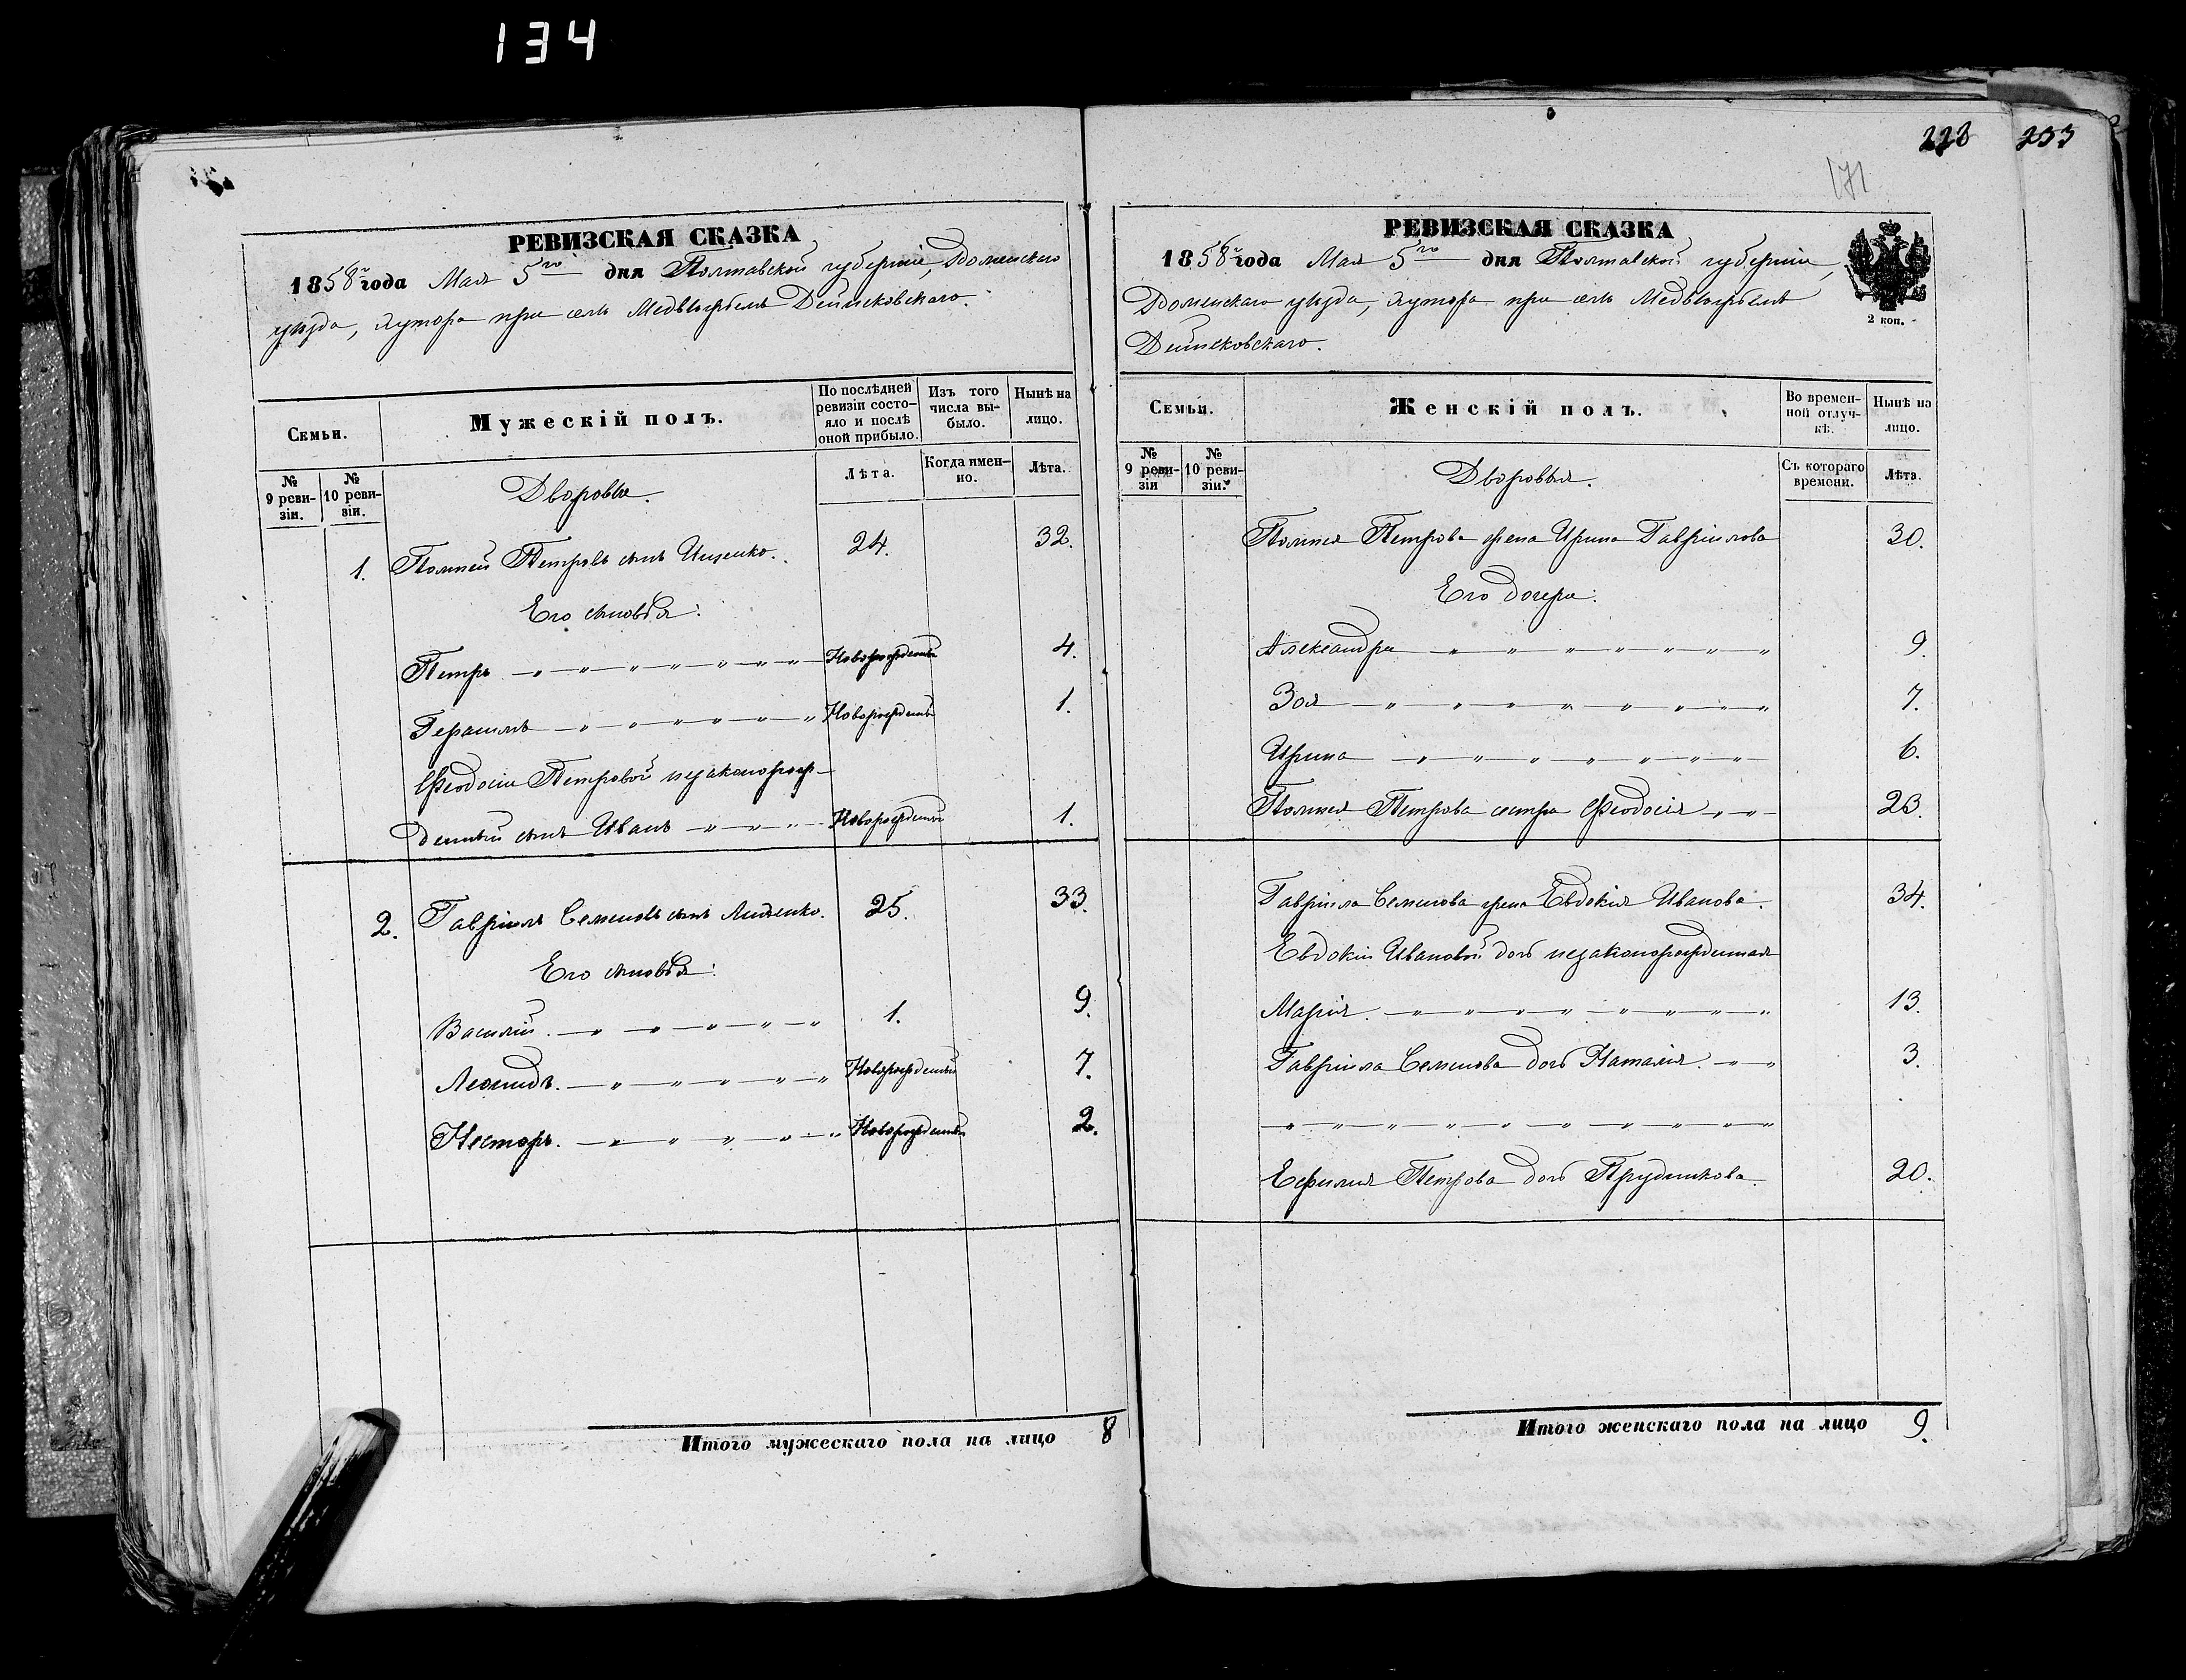 134
228 253
171
РЕВИЗСКАЯ СКАЗКА
1858 года Мая 5го дня Полтавской губернiи, Роменскаго
уѣзда, хутора при селѣ Медвѣжьемъ Дейнековскаго.
Семьи.
Мужескiй полъ.
По послѣдней ревизiи состояло и послѣ оной прибыло.
Изъ того числа выбыло.
Нынѣ на лицо.
№ 9 ревизiи.
№ 10 ревизiи.
Лѣта.
Когда именно.
Лѣта.
Дворовые.
1. Петровъ сынъ Ищенко. 24. 32.
Его сыновья:
Петръ Новорожденный 4.
Герасимъ Новорожденный 1.
Феодосiи Петровой незаконорож-
денный сынъ Иванъ Новорожденный 1.
2. Гаврiилъ Семеновъ сынъ 25. 33.
Его сыновья:
Василiй. 1. 9.
Леонидъ. Новорожденный 7.
Несторъ. Новорожденный 2.
Итого мужескаго пола на лицо 8
РЕВИЗСКАЯ СКАЗКА
1858 года Мая 5го дня Полтавской губернiи,
Роменскаго уѣзда, хутора при селѣ Медвѣжьемъ
Дейнековскаго.
2 коп.
Семьи.
Женскiй полъ.
Во временной отлучкѣ.
Нынѣ на лицо.
№ 9 ревизiи
№ 10 ревизiи.
Съ котораго времени.
Лѣта.
Дворовыя.
Петрова жена Ирина Гаврiилова 30.
Его дочери:
Александра 9.
Зоя 7.
Ирина 6.
Петрова сестра Феодосiя 23.
Гаврiила Семенова жена Евдокiя Иванова. 34.
Евдокiи Ивановой дочь незаконорожденная
Марiя. 13.
Гаврiила Семенова дочь Наталiя. 3.
Ефимiя Петрова дочь Прудникова. 20.
Итого женскаго пола на лицо 9.